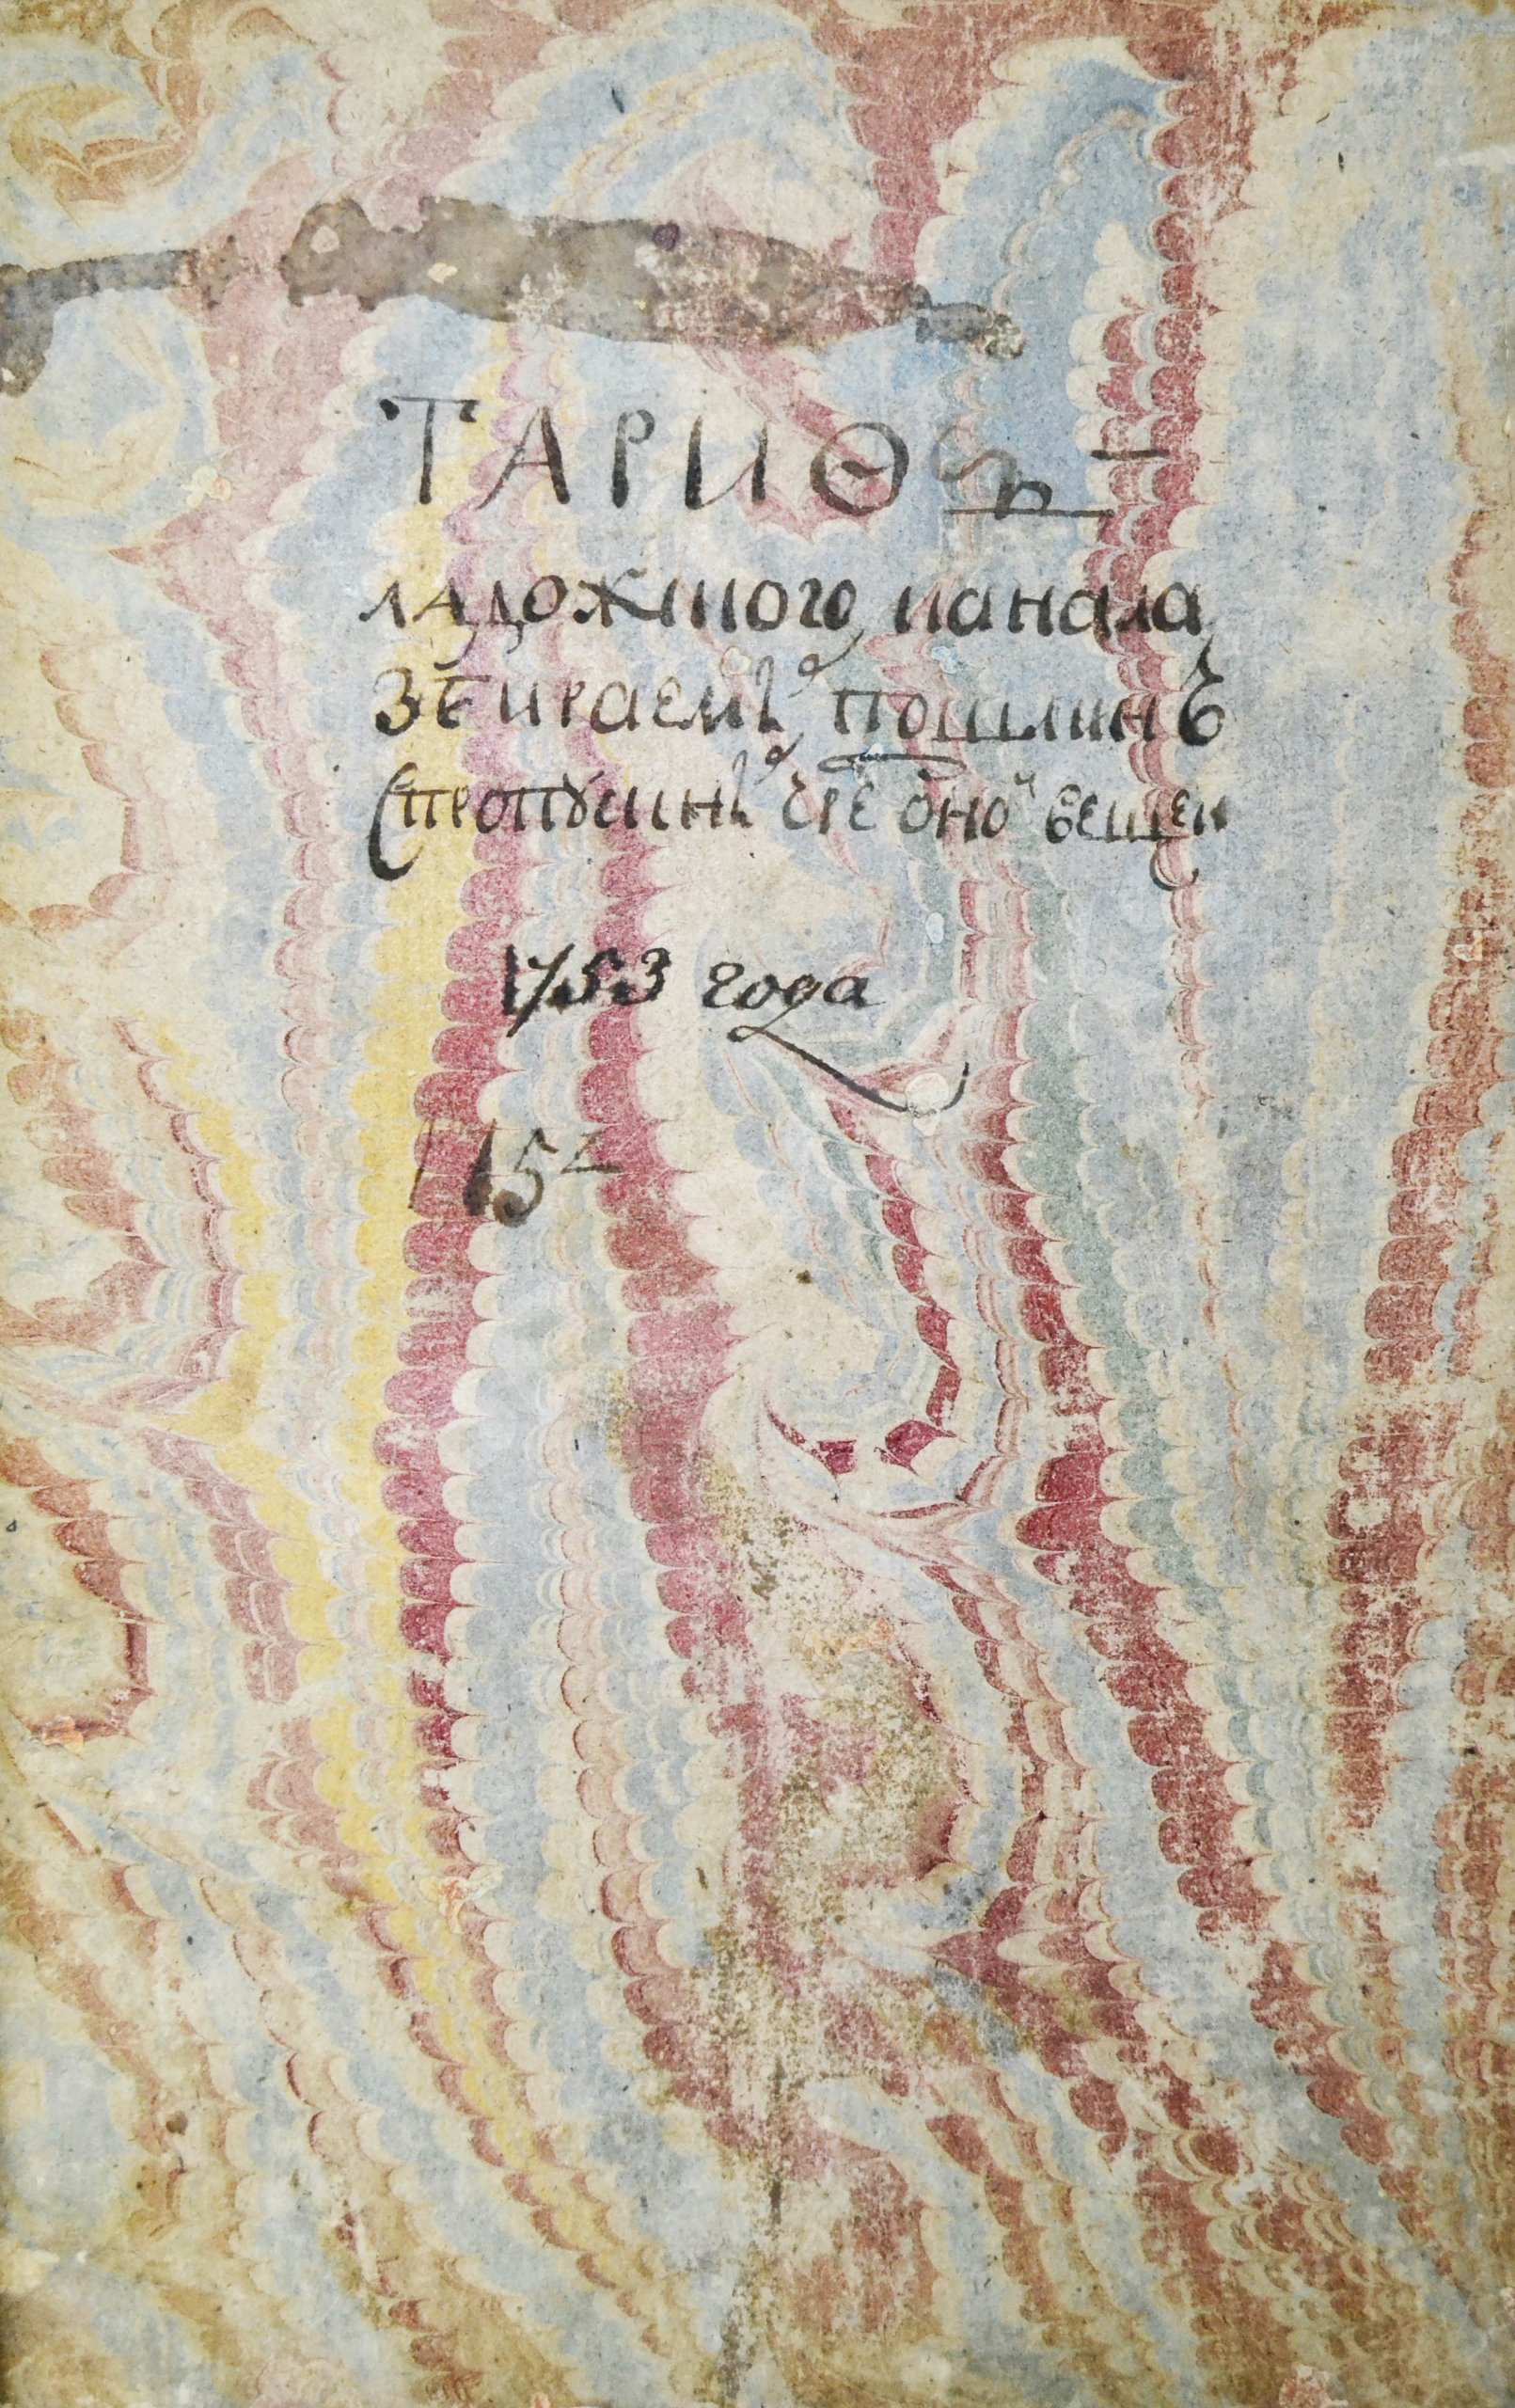 ТАРИѲ
ладожского канала
збираемых пошлинъ
спропускных чрез оной вещей
1753 года
175